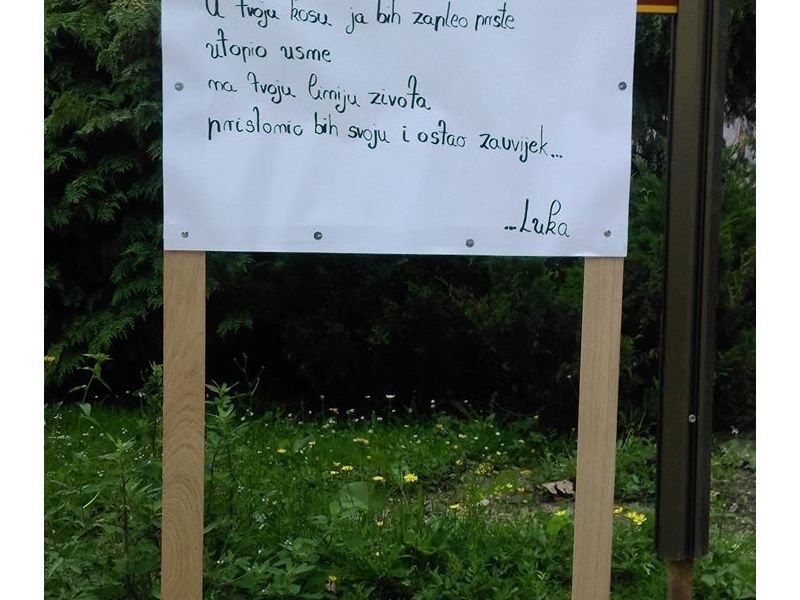 U tvoju kosu ja bih zapleo prste
utopio usme
na tvoju liniju zivota
prislonio bih svoju i ostao zauvijek...
...Luka